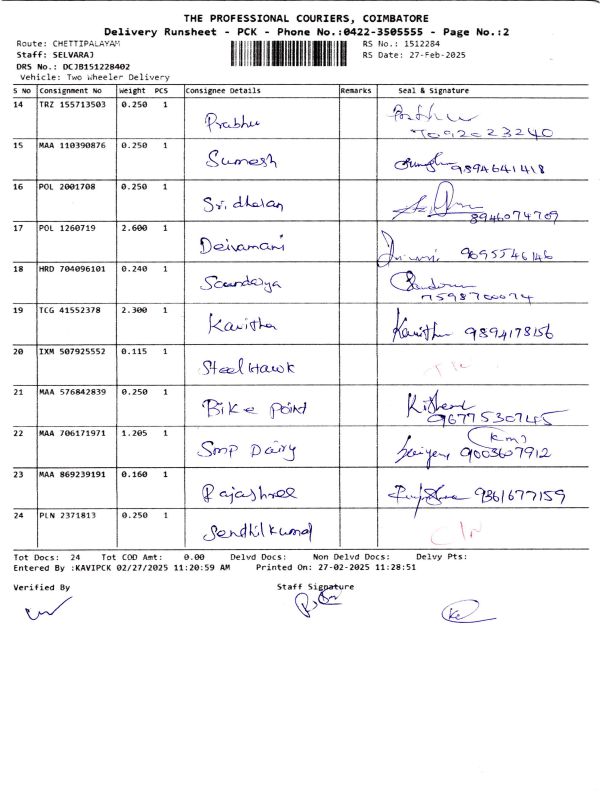 THE PROFESSIONAL COURIERS, COIMBATORE
Delivery Runsheet - PCK - Phone No.:0422-3505555 - Page No.:2
Route: CHETTIPALAYAM RS No.: 1512284
Staff: SELVARAJ RS Date: 27-Feb-2025
DRS No.: DCJB151228402
Vehicle: Two Wheeler Delivery
S No Consignment No Weight PCS Consignee Details Remarks Seal & Signature
14 TRZ 155713503 0.250 1 Prabhu
7092023240
15 MAA 110390876 0.250 1 Sumesh 9894641418
16 POL 2001708 0.250 1 Sridharan 8946074709
17 POL 1260719 2.600 1 Deivamani 9095546146
18 HRD 704096101 0.240 1 Soundarya
7598700074
19 TCG 41552378 2.300 1 Kavitha Kavitha 9894178156
20 IXM 507925552 0.115 1 Steel Hawk
21 MAA 576842839 0.250 1 Bike point
22 MAA 706171971 1.205 1 Smp Dairy 9003607912
23 MAA 869239191 0.160 1 Rajashree 9361677159
24 PLN 2371813 0.250 1 Sendhilkumar
Tot Docs: 24 Tot COD Amt: 0.00 Delvd Docs: Non Delvd Docs: Delvy Pts:
Entered By :KAVIPCK 02/27/2025 11:20:59 AM Printed On: 27-02-2025 11:28:51
Verified By Staff Signature